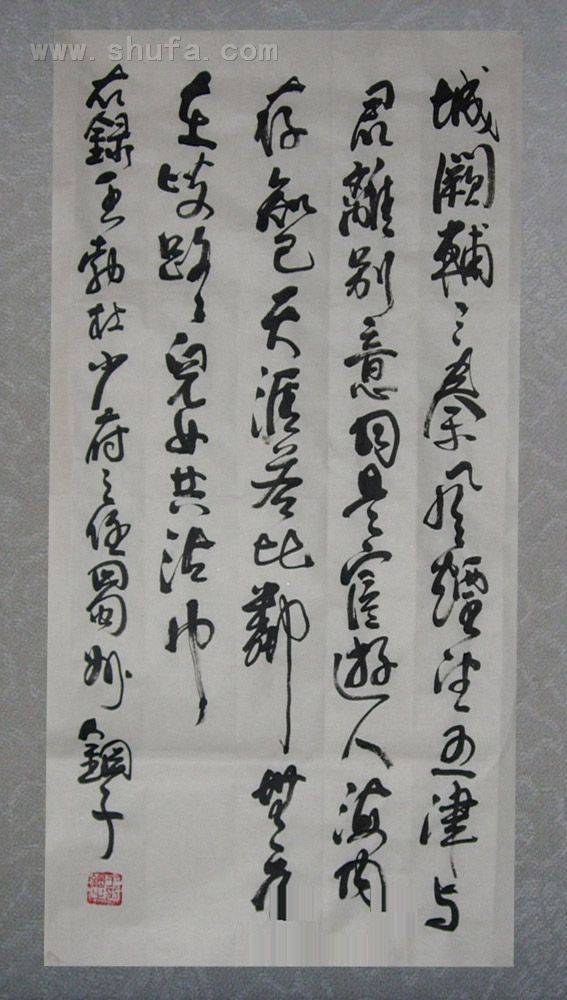 www.shufa.com
城闕輔三秦風煙望五津与
君離別意同是宦遊人海内
存知己天涯若比鄰無為
在歧路兒女共沾巾
右録王勃杜少府之任蜀州 鋼子